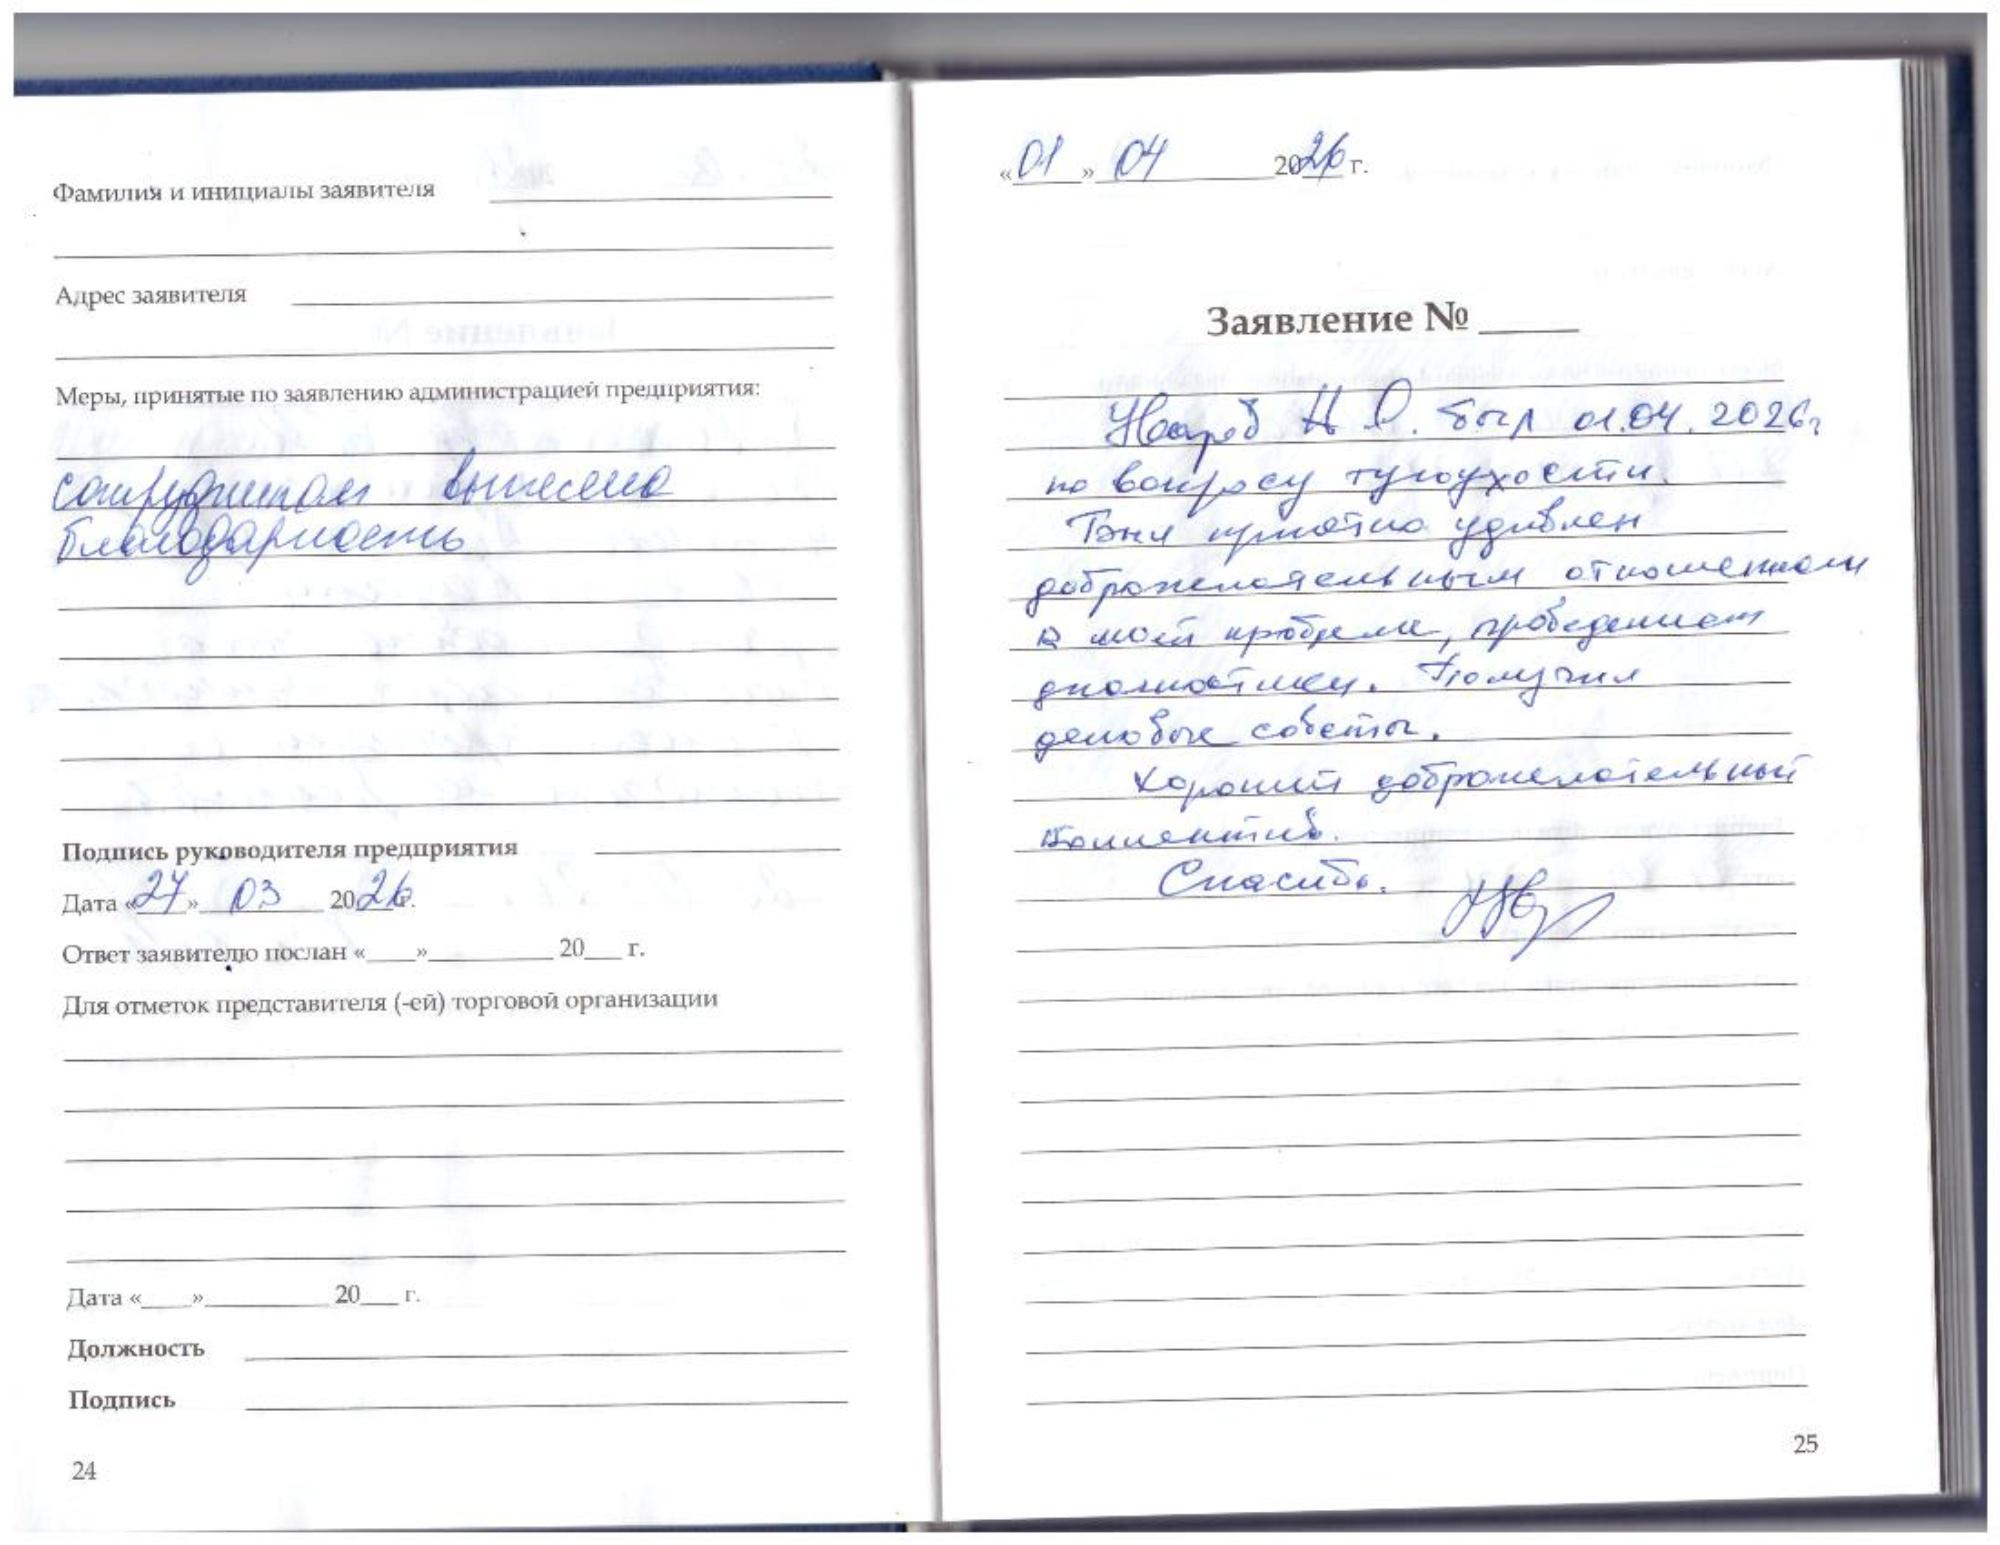 Фамилия и инициалы заявителя
Адрес заявителя
Меры, принятые по заявлению администрацией предприятия:
сотрудникам вынесена
благодарность
Подпись руководителя предприятия
Дата «27» 03 2026г.
Ответ заявителю послан «____»__________ 20___ г.
Для отметок представителя (-ей) торговой организации
Дата «____»__________ 20___ г.
Должность
Подпись
24
«01» 04 2026 г.
Заявление № _____
Н. О. был 01.04.2026г
по вопросу тугоухости.
Был приятно удивлен
доброжелательным отношением
к моей проблеме, проведением
диагностики. Получил
деловые советы.
Хороший доброжелательный
коллектив.
Спасибо.
25